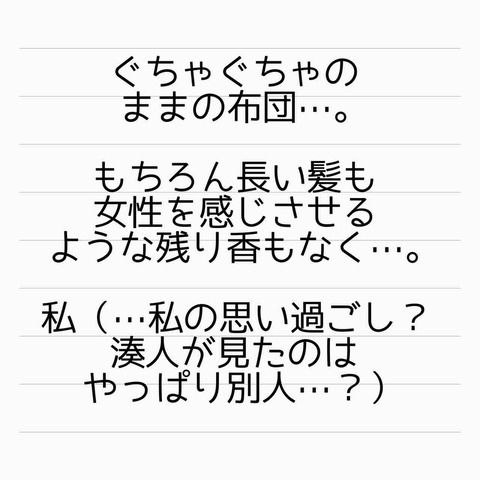 ぐちゃぐちゃの
ままの布団…。
もちろん長い髪も
女性を感じさせる
ような残り香もなく…。
私（…私の思い過ごし？
湊人が見たのは
やっぱり別人…？）